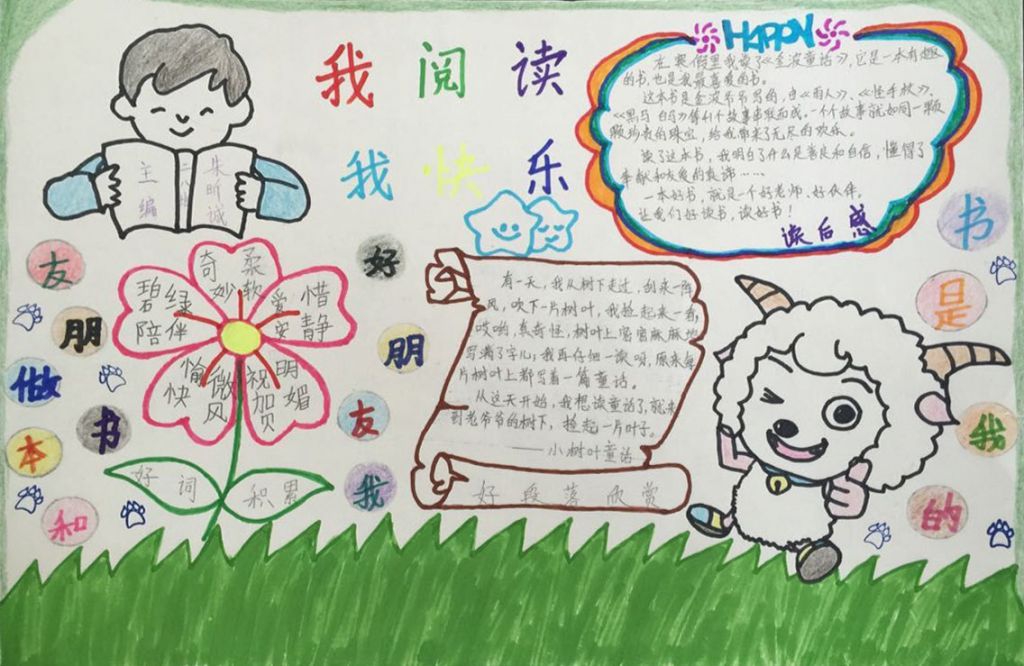 我阅读
我快乐
主编
朱昕诚
HAPPY
在寒假里我读了《金波童话》,它是一本有趣
的书,也是我最喜爱的书。
这本书是金波爷爷写的,由《雨人》、《怪手杖》、
《黑马 白马》等41个故事串联而成,一个个故事就如同一颗
颗珍贵的珠宝,给我带来了无尽的欢乐。
读了这本书,我明白了什么是善良和自信,懂得了
奉献和友爱的真谛……
一本好书,就是一个好老师、好伙伴。
让我们好读书,读好书!
读后感
奇妙
柔软
碧绿
陪伴
爱惜
安静
愉快
微风
祝贺
明媚
好词
积累
有一天,我从树下走过,刮来一阵
风,吹下一片树叶,我捡起来一看,
哎哟,真奇怪,树叶上密密麻麻地
写满了字儿;我再仔细一读呀,原来每
片树叶上都写着一篇童话。
从这天开始,我想读童话了,就来
到老爷爷的树下,捡起一片叶子。
——小树叶童话
好段落欣赏
书是我的
好朋友我
和书本做
朋友